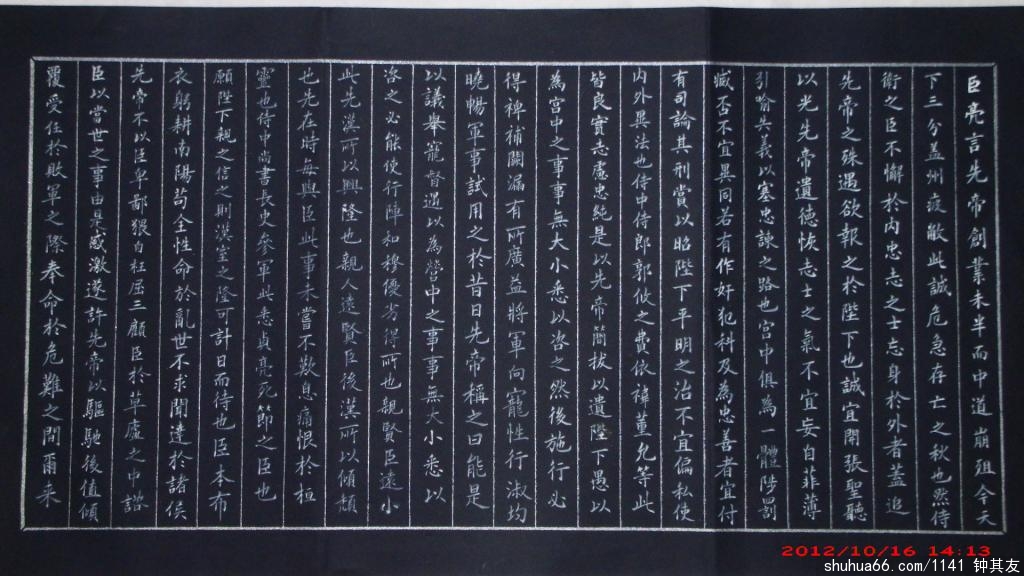 臣亮言先帝創業未半而中道崩殂今天
下三分益州疲敝此誠危急存亡之秋也然侍
衛之臣不懈於內忠志之士忘身於外者蓋追
先帝之殊遇欲報之於陛下也誠宜開張聖聽
以光先帝遺德恢志士之氣不宜妄自菲薄
引喻失義以塞忠諫之路也宮中俱為一體陟罰
臧否不宜異同若有作奸犯科及為忠善者宜付
有司論其刑賞以昭陛下平明之治不宜偏私使
內外異法也侍中侍郎郭攸之費依禕董允等此
皆良實志慮忠純是以先帝簡拔以遺陛下愚以
為宮中之事事無大小悉以咨之然後施行必
得裨補闕漏有所廣益將軍向寵性行淑均
曉暢軍事試用之於昔日先帝稱之曰能是
以議舉寵督遇以為營中之事事無大小悉以
咨之必能使行陣和穆優劣得所也親賢臣遠小
此先漢所以興隆也親人遠賢臣後漢所以傾頹
也先在時每與臣此事未嘗不歎息痛恨於桓
靈也侍中尚書長史參軍此悉貞亮死節之臣也
願陛下親之信之則漢室之隆可計日而待也臣本布
衣躬耕南陽苟全性命於亂世不求聞達於諸侯
先帝不以臣卑鄙猥自枉屈三顧臣於草廬之中諮
臣以當世之事由是感激遂許先帝以驅馳後值傾
覆受任於敗軍之際奉命於危難之間爾来
2012/10/16 14:13
shuhua66.com/1141 钟其友